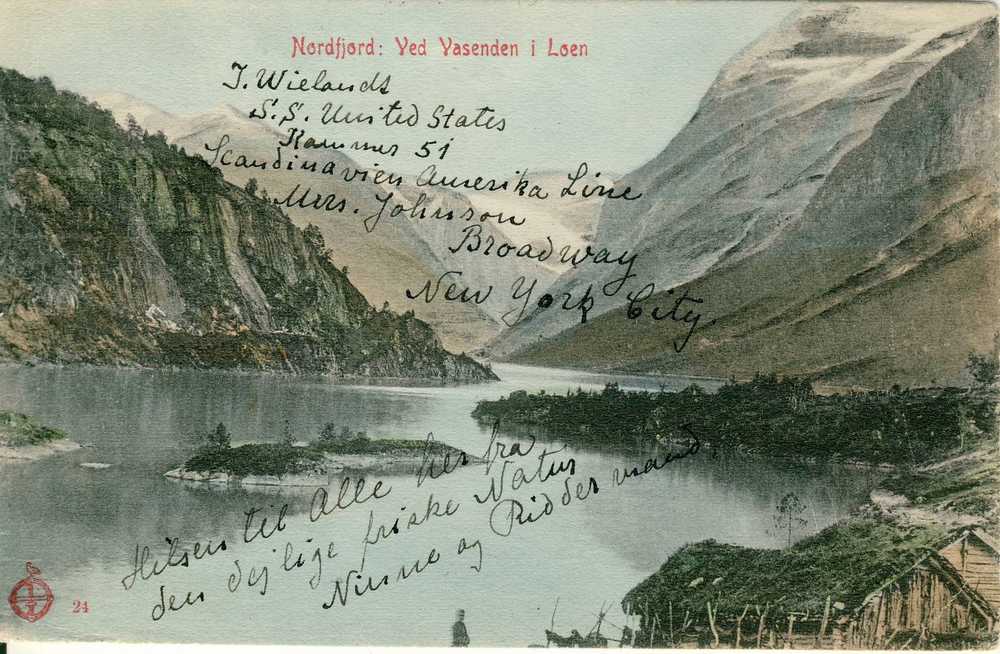 Nordfjord: Ved Vasenden i Loen
J. Wielandt
S.S. United States
Kammer 51
Scandinavien Amerika Line
Mrs. Johnson
Broadway
New York City.
Hilsen til Alle her fra
den dejlige friske Natur
Ninne og Ridder
24